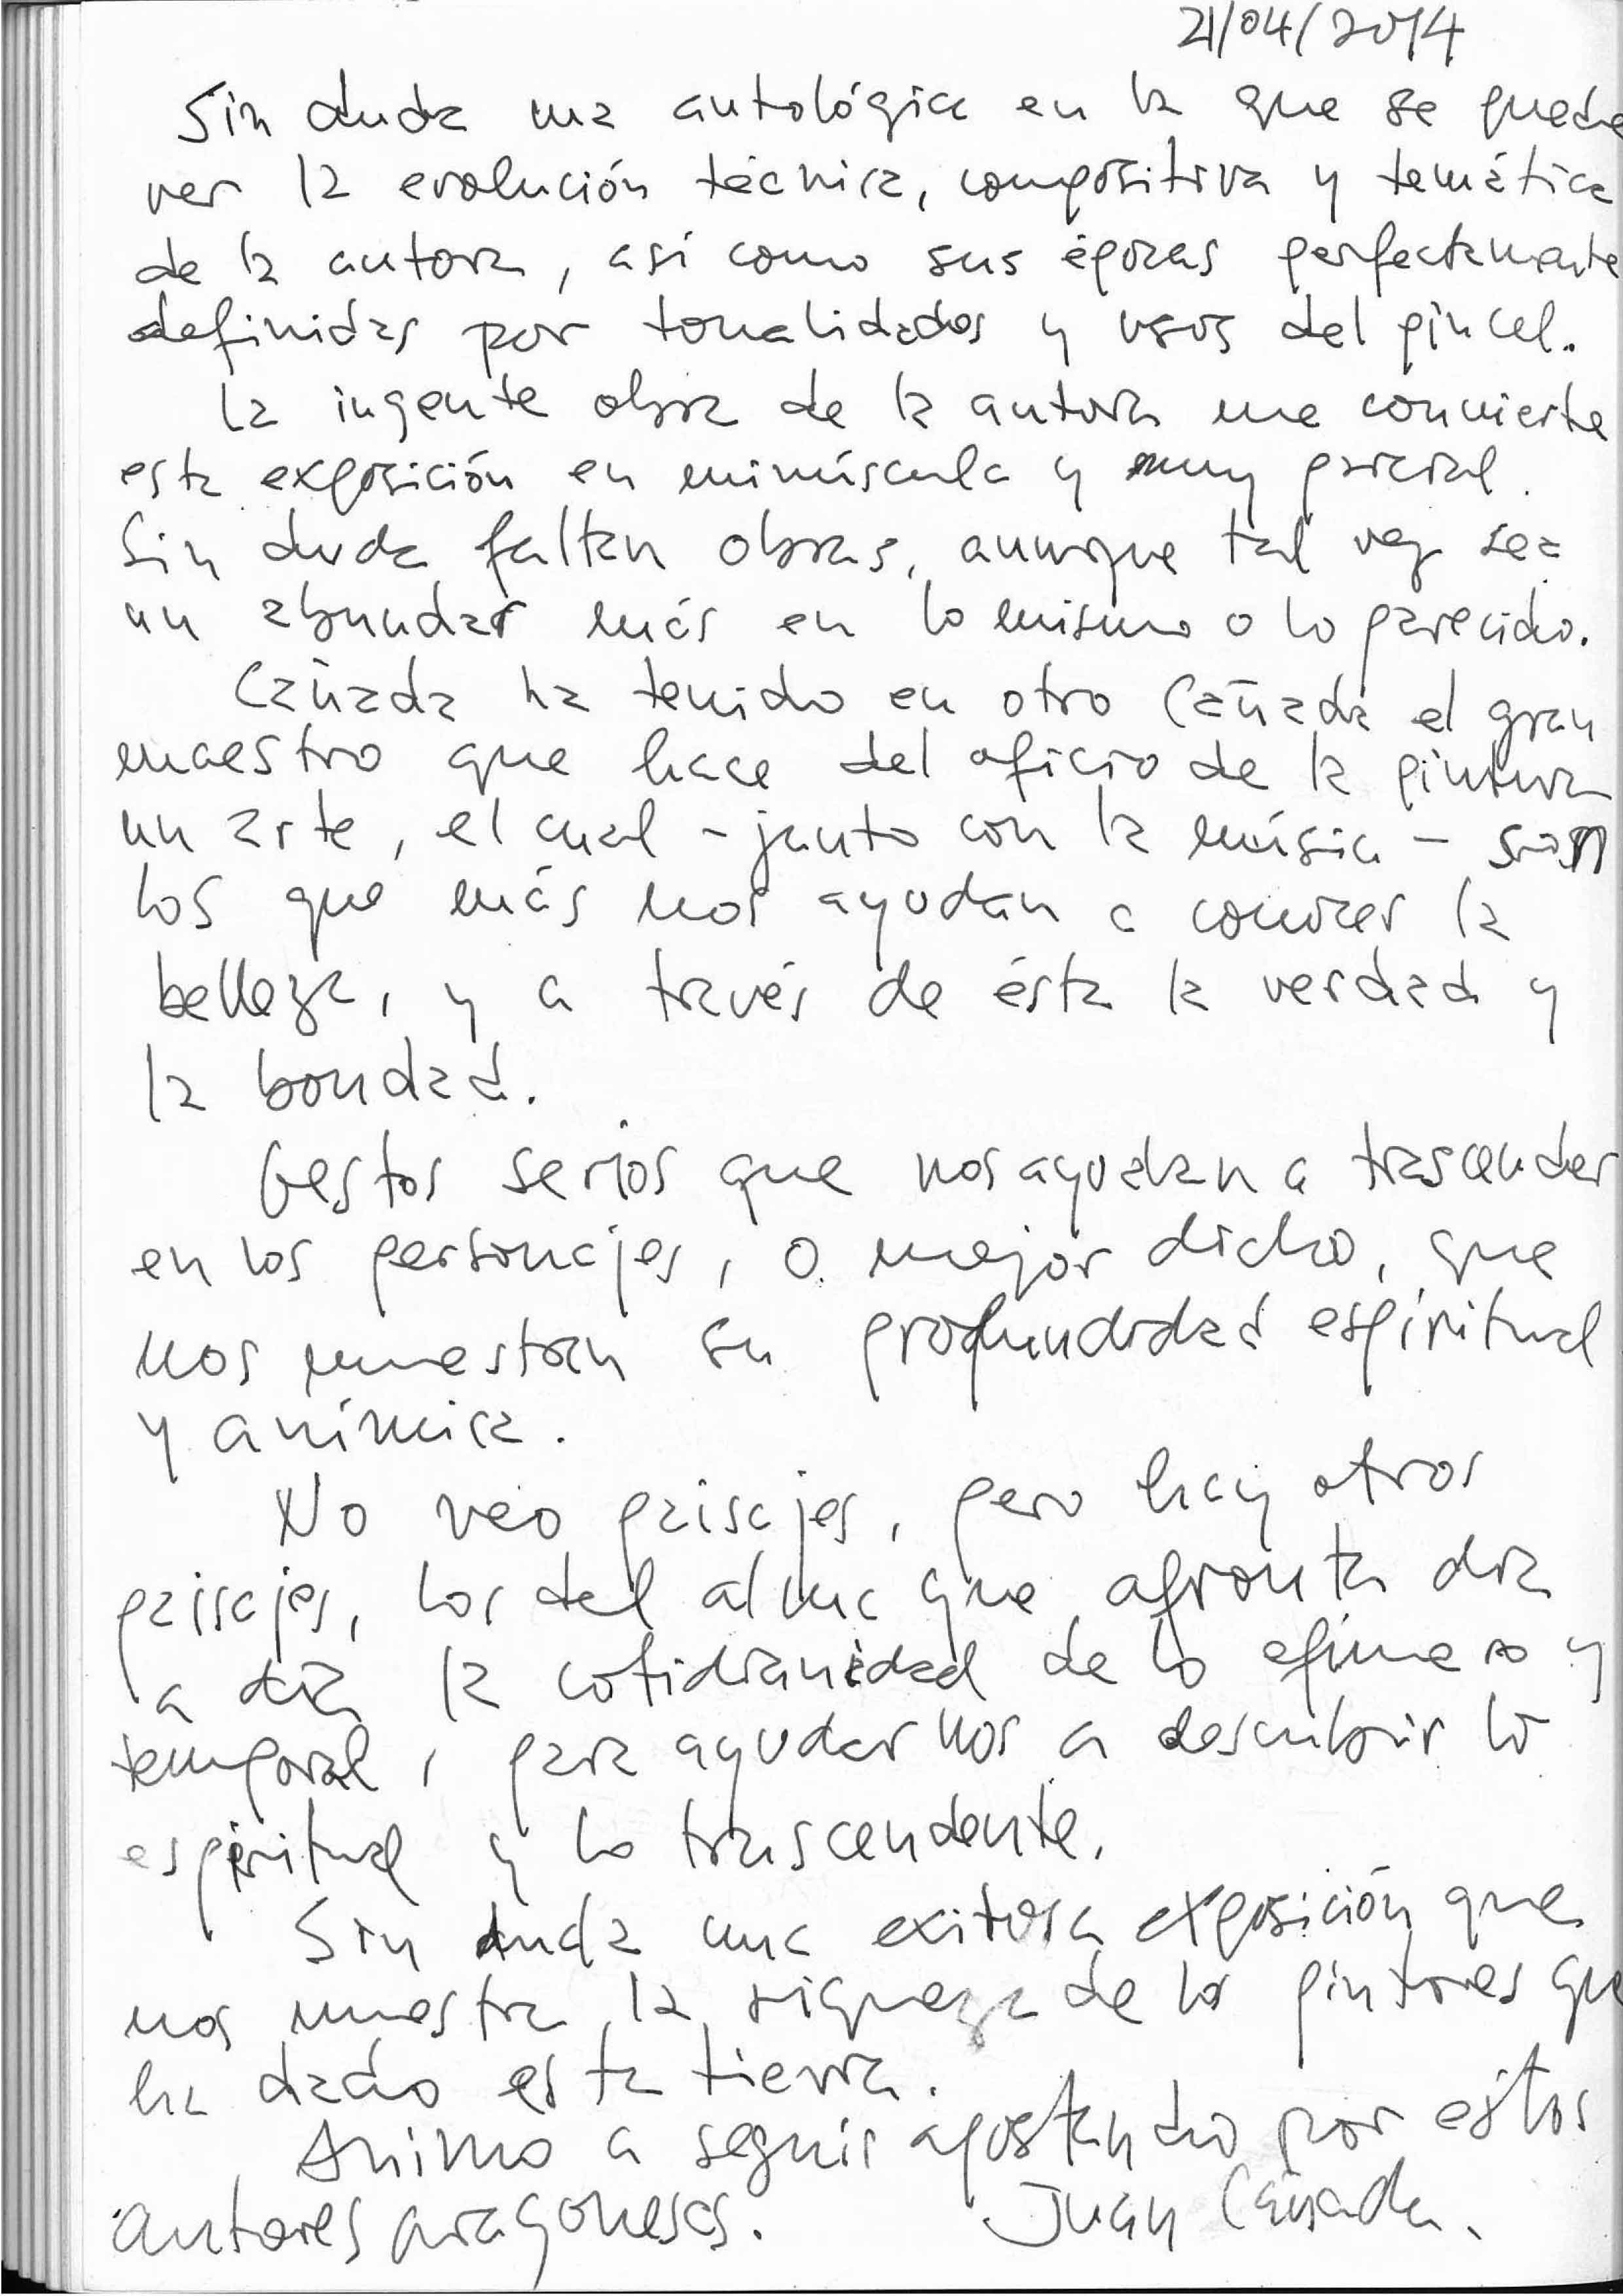 21/04/2014
Sin duda una antológica en la que se puede
ver la evolución técnica, compositiva y temática
de la autora, así como sus épocas perfectamente
definidas por tonalidades y usos del pincel.
La ingente obra de la autora me convierte
esta exposición en minúscula y muy parcial.
Sin duda faltan obras, aunque tal vez sea
un abundar más en lo mismo o lo parecido.
Cañada ha tenido en otro Cañada el gran
maestro que hace del oficio de la pintura
un arte, el cual - junto con la música - son
los que más nos ayudan a conocer la
belleza, y a través de ésta la verdad y
la bondad.
Gestos serios que nos ayudan a trascender
en los personajes, o mejor dicho, que
nos muestran su profundidad espiritual
y anímica.
No veo paisajes, pero hay otros
paisajes, los del alma que afronta día
a día la cotidianidad de lo efímero y
temporal, para ayudarnos a descubrir lo
espiritual y lo trascendente.
Sin duda una exitosa exposición que
nos muestra la riqueza de los pintores que
ha dado esta tierra.
Animo a seguir apostando por estos
autores aragoneses. Juan Cañada.